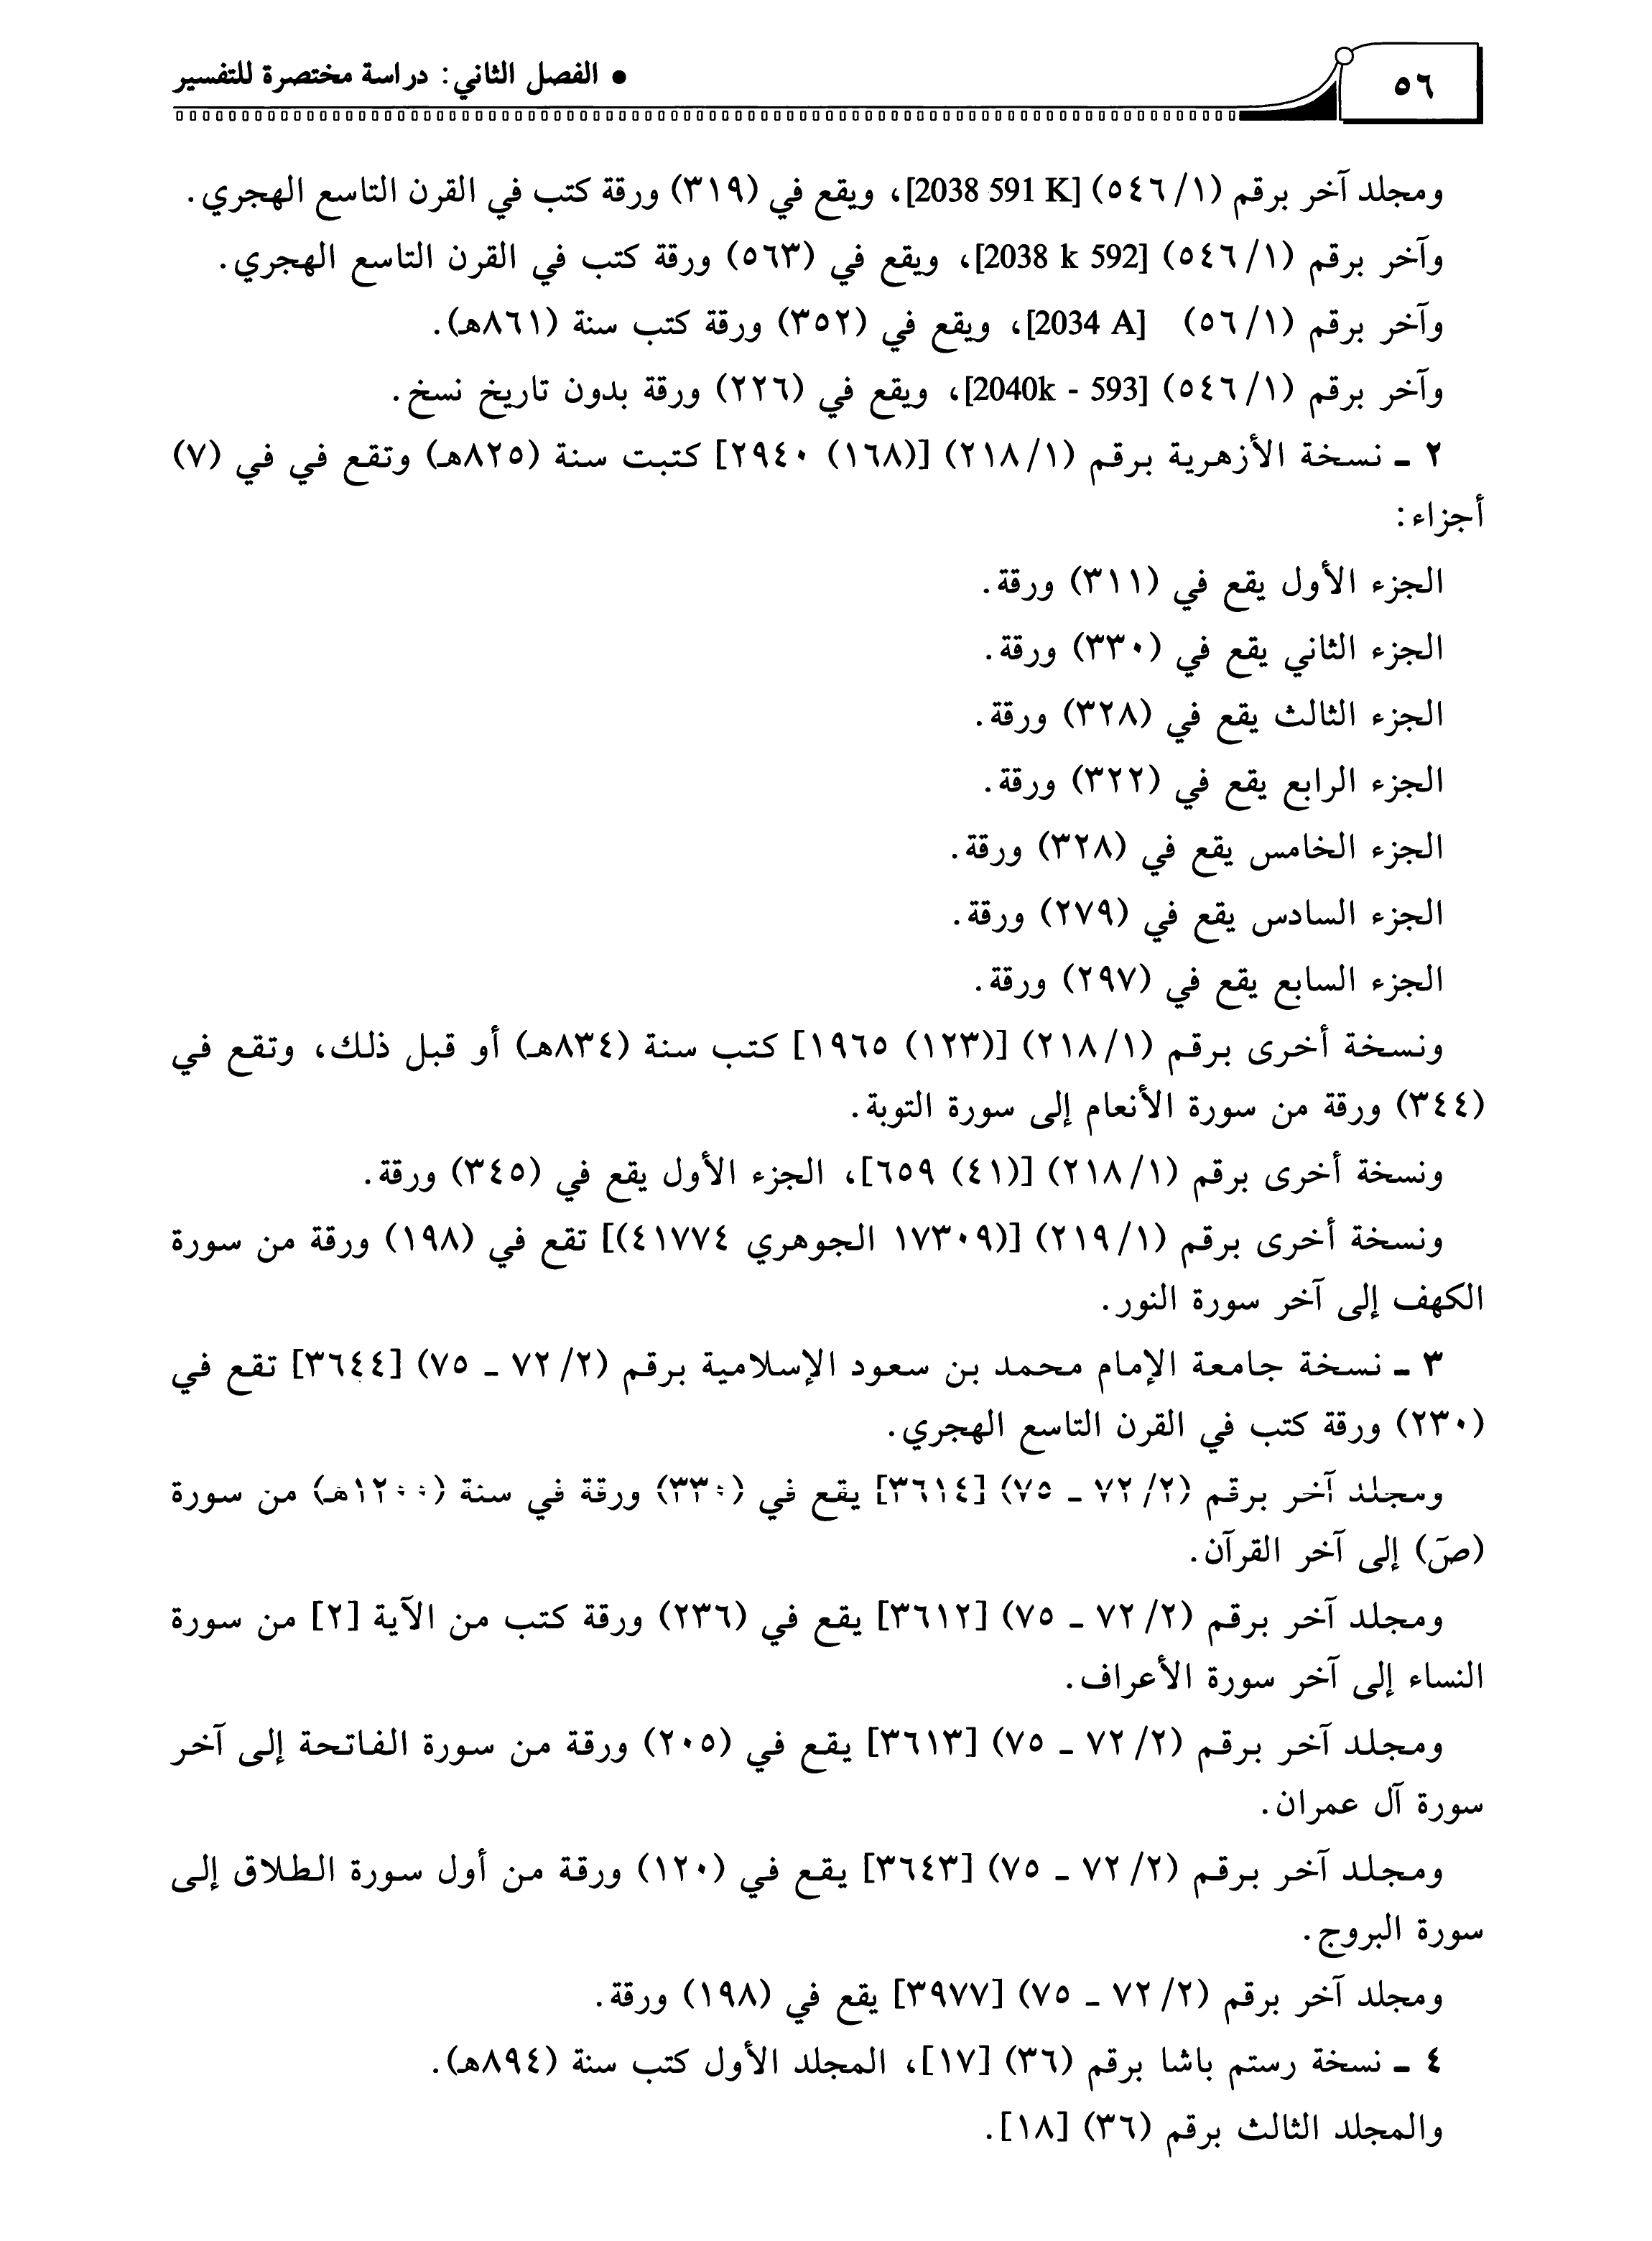 ٥٦
• الفصل الثاني: دراسة مختصرة للتفسير
ومجلد آخر برقم (١/ ٥٤٦) [2038 591 K]، ويقع في (٣١٩) ورقة كتب في القرن التاسع الهجري.
وآخر برقم (١/ ٥٤٦) [2038 k 592]، ويقع في (٥٦٣) ورقة كتب في القرن التاسع الهجري.
وآخر برقم (١/ ٥٦) [2034 A]، ويقع في (٣٥٢) ورقة كتب سنة (٨٦١هـ).
وآخر برقم (١/ ٥٤٦) [2040k - 593]، ويقع في (٢٢٦) ورقة بدون تاريخ نسخ.
٢ ـ نسخة الأزهرية برقم (١/ ٢١٨) [(١٦٨) ٢٩٤٠] كتبت سنة (٨٢٥هـ) وتقع في في (٧)
أجزاء:
الجزء الأول يقع في (٣١١) ورقة.
الجزء الثاني يقع في (٣٣٠) ورقة.
الجزء الثالث يقع في (٣٢٨) ورقة.
الجزء الرابع يقع في (٣٢٢) ورقة.
الجزء الخامس يقع في (٣٢٨) ورقة.
الجزء السادس يقع في (٢٧٩) ورقة.
الجزء السابع يقع في (٢٩٧) ورقة.
ونسخة أخرى برقم (١/ ٢١٨) [(١٢٣) ١٩٦٥] كتب سنة (٨٣٤هـ) أو قبل ذلك، وتقع في
(٣٤٤) ورقة من سورة الأنعام إلى سورة التوبة.
ونسخة أخرى برقم (١/ ٢١٨) [(٤١) ٦٥٩]، الجزء الأول يقع في (٣٤٥) ورقة.
ونسخة أخرى برقم (١/ ٢١٩) [(١٧٣٠٩ الجوهري ٤١٧٧٤)] تقع في (١٩٨) ورقة من سورة
الكهف إلى آخر سورة النور.
٣ ـ نسخة جامعة الإمام محمد بن سعود الإسلامية برقم (٢/ ٧٢ ـ ٧٥) [٣٦٤٤] تقع في
(٢٣٠) ورقة كتب في القرن التاسع الهجري.
ومجلد آخر برقم (٢/ ٧٢ ـ ٧٥) [٣٦١٤] يقع في (٣٣٠) ورقة في سنة (١٢٠٠هـ) من سورة
(صٓ) إلى آخر القرآن.
ومجلد آخر برقم (٢/ ٧٢ ـ ٧٥) [٣٦١٢] يقع في (٢٣٦) ورقة كتب من الآية [٢] من سورة
النساء إلى آخر سورة الأعراف.
ومجلد آخر برقم (٢/ ٧٢ ـ ٧٥) [٣٦١٣] يقع في (٢٠٥) ورقة من سورة الفاتحة إلى آخر
سورة آل عمران.
ومجلد آخر برقم (٢/ ٧٢ ـ ٧٥) [٣٦٤٣] يقع في (١٢٠) ورقة من أول سورة الطلاق إلى
سورة البروج.
ومجلد آخر برقم (٢/ ٧٢ ـ ٧٥) [٣٩٧٧] يقع في (١٩٨) ورقة.
٤ ـ نسخة رستم باشا برقم (٣٦) [١٧]، المجلد الأول كتب سنة (٨٩٤هـ).
والمجلد الثالث برقم (٣٦) [١٨].